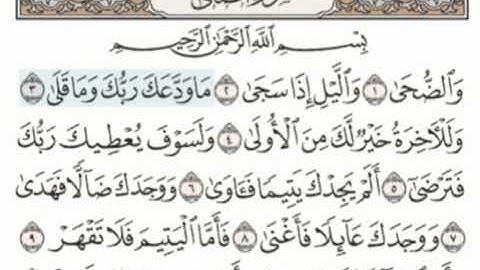 سورة الضحى
بِسْمِ اللَّهِ الرَّحْمَٰنِ الرَّحِيمِ
وَالضُّحَىٰ ١ وَاللَّيْلِ إِذَا سَجَىٰ ٢ مَا وَدَّعَكَ رَبُّكَ وَمَا قَلَىٰ ٣
وَلَلْآخِرَةُ خَيْرٌ لَّكَ مِنَ الْأُولَىٰ ٤ وَلَسَوْفَ يُعْطِيكَ رَبُّكَ
فَتَرْضَىٰ ٥ أَلَمْ يَجِدْكَ يَتِيمًا فَآوَىٰ ٦ وَوَجَدَكَ ضَالًّا فَهَدَىٰ
٧ وَوَجَدَكَ عَائِلًا فَأَغْنَىٰ ٨ فَأَمَّا الْيَتِيمَ فَلَا تَقْهَرْ ٩